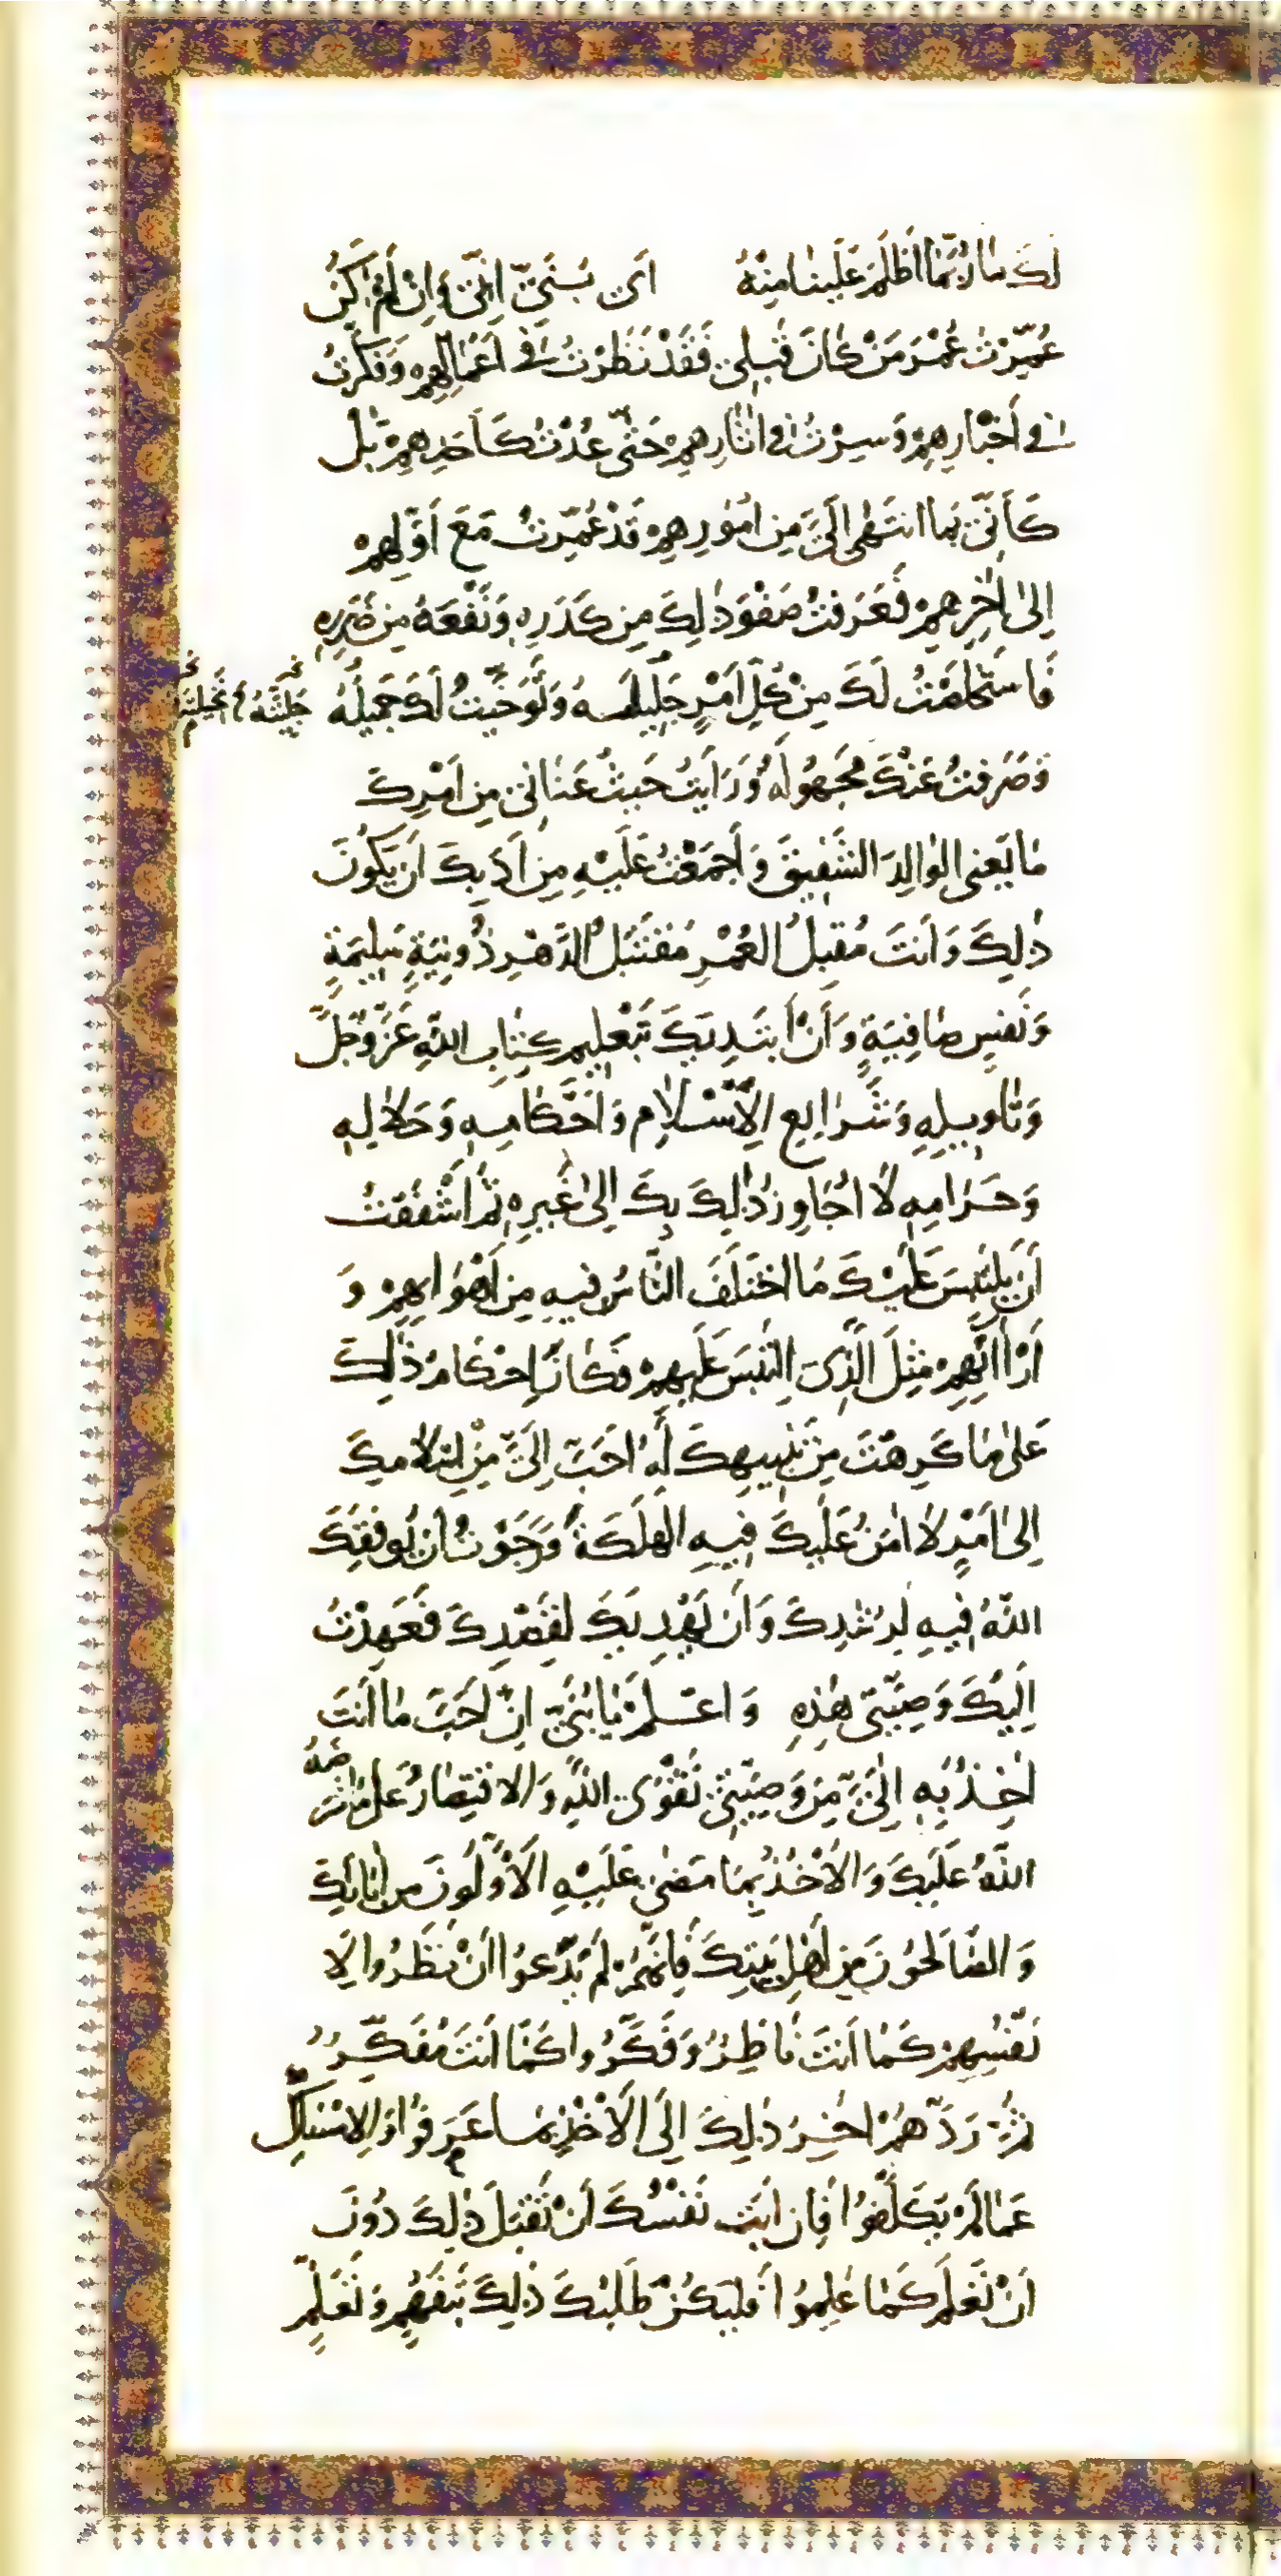 لَكَ مَا رُبَّمَا أَظْلَمَ عَلَيْنَا مِنْهُ أَىْ بُنَىَّ اِنِّى وَاِنْ لَمْ أَكُنْ
عُمِّرْتُ عُمْرَ مَنْ كَانَ قَبْلِى فَقَدْ نَظَرْتُ فِى أَعْمَالِهِمْ وَفَكَّرْتُ
فِى أَخْبَارِهِمْ وَسِرْتُ فِى اٰثَارِهِمْ حَتّٰى عُدْتُ كَأَحَدِهِمْ بَلْ
كَأَنِّى بِمَا انْتَهٰى اِلَىَّ مِنْ اُمُورِهِمْ قَدْ عُمِّرْتُ مَعَ أَوَّلِهِمْ
اِلٰى اٰخِرِهِمْ فَعَرَفْتُ صَفْوَ ذٰلِكَ مِنْ كَدَرِهِ وَنَفْعَهُ مِنْ ضَرَرِهِ
فَاسْتَخْلَصْتُ لَكَ مِنْ كُلِّ اَمْرٍ جَلِيلَهُ وَتَوَخَّيْتُ لَكَ جَمِيلَهُ
وَصَرَفْتُ عَنْكَ مَجْهُولَهُ وَرَأَيْتُ حَيْثُ عَنَانِى مِنْ اَمْرِكَ
مَا يَعْنِى الْوَالِدَ الشَّفِيقَ وَأَجْمَعْتُ عَلَيْهِ مِنْ أَدَبِكَ اَنْ يَكُونَ
ذٰلِكَ وَاَنْتَ مُقْبِلُ الْعُمْرِ مُقْتَبَلُ الدَّهْرِ ذُو نِيَّةٍ سَلِيمَةٍ
وَنَفْسٍ صَافِيَةٍ وَأَنْ أَبْتَدِئَكَ بِتَعْلِيمِ كِتَابِ اللّٰهِ عَزَّ وَجَلَّ
وَتَأْوِيلِهِ وَشَرَايِعِ الْإِسْلَامِ وَأَحْكَامِهِ وَحَلَالِهِ
وَحَرَامِهِ لَا اُجَاوِزُ ذٰلِكَ بِكَ اِلٰى غَيْرِهِ ثُمَّ اَشْفَقْتُ
أَنْ يَلْتَبِسَ عَلَيْكَ مَا اخْتَلَفَ النَّاسُ فِيهِ مِنْ أَهْوَائِهِمْ وَ
اٰرَائِهِمْ مِثْلَ الَّذِى الْتَبَسَ عَلَيْهِمْ فَكَانَ اِحْكَامُ ذٰلِكَ
عَلٰى مَا كَرِهْتَ مِنْ تَنْبِيهِكَ لَهُ اَحَبَّ اِلَىَّ مِنْ اِسْلَامِكَ
اِلٰى اَمْرٍ لَا اٰمَنُ عَلَيْكَ فِيهِ الْهَلَكَةَ وَرَجَوْتُ اَنْ يُوَفِّقَكَ
اللّٰهُ فِيهِ لِرُشْدِكَ وَاَنْ يَهْدِيَكَ لِقَصْدِكَ فَعَهِدْتُ
اِلَيْكَ وَصِيَّتِى هٰذِهِ وَاعْلَمْ يَا بُنَىَّ اِنَّ اَحَبَّ مَا اَنْتَ
اٰخِذٌ بِهِ اِلَىَّ مِنْ وَصِيَّتِى تَقْوَى اللّٰهِ وَالِاقْتِصَارُ عَلٰى مَا فَرَضَهُ
اللّٰهُ عَلَيْكَ وَالْأَخْذُ بِمَا مَضٰى عَلَيْهِ الْأَوَّلُونَ مِنْ اٰبَائِكَ
وَالصَّالِحُونَ مِنْ أَهْلِ بَيْتِكَ فَإِنَّهُمْ لَمْ يَدَعُوا أَنْ نَظَرُوا لِاَ
نْفُسِهِمْ كَمَا اَنْتَ نَاظِرٌ وَفَكَّرُوا كَمَا اَنْتَ مُفَكِّرٌ
ثُمَّ رَدَّهُمْ اٰخِرُ ذٰلِكَ اِلَى الْأَخْذِ بِمَا عَرَفُوا وَالْاِمْسَاكِ
عَمَّا لَمْ يُكَلَّفُوا فَاِنْ أَبَتْ نَفْسُكَ أَنْ تَقْبَلَ ذٰلِكَ دُونَ
اَنْ تَعْلَمَ كَمَا عَلِمُوا فَلْيَكُنْ طَلَبُكَ ذٰلِكَ بِتَفَهُّمٍ وَتَعَلُّمٍ